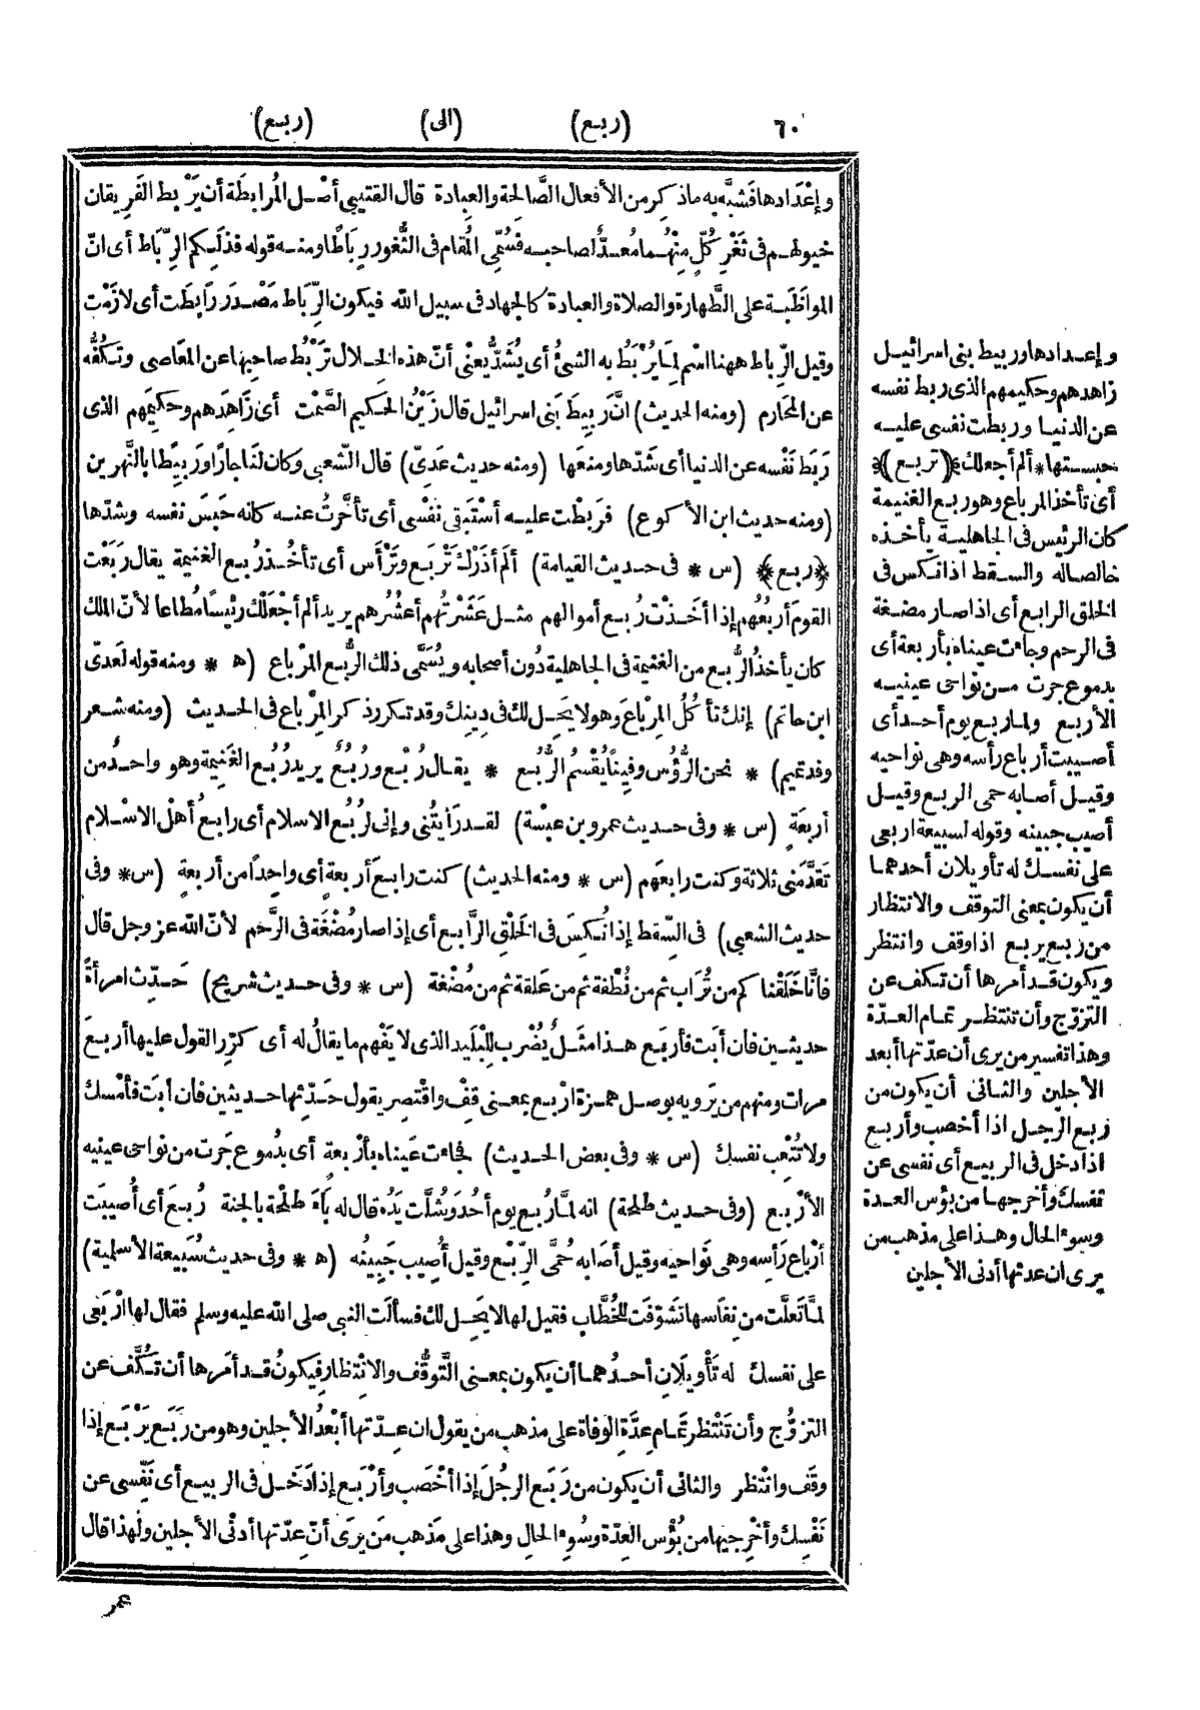 ٦٠ (ربع) (الى) (ربع)
وإعْدَادها فَشبَّه به ماذ كرمن الأفعال الصَّالحة والعبادة قال القتيبى أصْل المُرابطَة أن يَرْبط الفَرِيقان
خيولهم فى ثَغْرٍ كُلٌّ مِنْهُما مُعدٌّ لصاحبه فسُمّى المُقام فى الثُّغور رِبَاطًا ومنه قوله فذَلِكم الرِّبَاط أى انّ
المواظَبة على الطَّهارة والصلاة والعبادة كالجهاد فى سبيل الله فيكون الرِّبَاط مَصْدَرَ رَابَطَت أى لازَمْت
وقيل الرِّباط ههنا اسْم لِمَا يُرْبَطُ به الشئُ أى يُشَدُّ يعْنى أنّ هذه الخلال تَرْبُط صاحبها عن المعَاصى وتَكُفُّه
عن المحَارم (ومنه الحديث) انَّ رَبِيطَ بَنى اسرائيل قال زَيْنُ الحَكيم الصَّمْت أى زَاهِدَهم وحكيمَهم الذى
رَبَط نَفْسه عن الدنيا أى شَدّها ومنعَها (ومنه حديث عَدىّ) قال الشّعبى وكان لَنَا جارًا ورَبِيطًا بالنَّهرين
(ومنه حديث ابن الأكوع) فرَبطْت عليه أسْتَبقى نفْسى أى تأخَّرتُ عنه كانه حَبَسَ نفسه وشدّها
﴿ربع﴾ (س * فى حديث القيامة) ألَم أذَرْكَ تَرْبَع وتَرْأَس أى تأخُذ رُبع الغنيمة يقال رَبَعْت
القومَ أربُعُهم إذا أخَذْت رُبع أموالهم مثل عَشَرْتُهم أعْشُرهم يريد ألم أجْعَلْك رئيسًا مُطاعا لأنّ الملك
كان يأخذُ الرُّبع من الغنيمة فى الجاهلية دُون أصحابه ويُسَمَّى ذلك الرُّبع المرْباع (ه * ومنه قوله لعَدىّ
ابن حاتم) إنك تأكُلُ المِرْباعَ وهو لا يَحِل لك فى دِينِك وقد تكررذ كر المِرْباع فى الحديث (ومنه شعر
وفد تميم) * نحن الرُّؤُس وفِينا يُقْسَم الرُّبُع * يقال رُبْع ورُبُعٌ يريد رُبُع الغَنِيمة وهو واحدٌ من
أربعةٍ (س * وفى حديث عمرو بن عبسة) لقد رَأيتُنى وإنى لرُبُع الاسلام أى رابعُ أهْل الاسْلام
تَقدَّمَنى ثلاثة وكنت رابعَهم (س * ومنه الحديث) كنت رابعَ أربعةٍ أى واحِدًا من أربعةٍ (س* وفى
حديث الشعبى) فى السِّقط إذا نُكسَ فى الخَلْقِ الرَّابع أى إذا صار مُضْغَة فى الرَّحم لأنّ الله عز وجل قال
فانَّا خَلَقْنا كم من تُرَاب ثم من نُطْفة ثم من عَلقة ثم من مُضْغة (س * وفى حديث شريح) حَدِّث امرأةً
حديثين فان أبَت فأربَع هذا مثَلٌ يُضْرب للْبَليد الذى لا يَفْهم ما يقالُ له أى كرّر القول عليها أربعَ
مرات ومنهم من يَرويه بوصل همزة ارْبع بمعنى قِفْ واقْتَصِر يقول حَدّثها حديثين فان أبَت فأمْسك
ولا تُتْعِب نفسك (س * وفى بعض الحديث) فجاءت عَيناه بأرْبعةٍ أى بدُموع جَرت من نواحى عينيه
الأرْبع (وفى حديث طلحة) انه لمَّا رُبع يوم أحُد وَشُلَّت يَدُه قال له بَاءَ طَلْحة بالجنة رُبعَ أى أُصيبَت
أرْباع رَأسِه وهى نَواحيه وقيل أصَابه حُمَّى الرِّبْع وقيل أُصِيب جَبِينُه (ه * وفى حديث سُبَيعة الأسلمية)
لمَّا تَعلَّت من نِفاسها تَشوّفَت للخُطَّاب فقيل لها لا يَحِل لك فسألَت النبى صلى الله عليه وسلم فقال لها ارْبَعى
على نفسك له تَأْوِيلَان أحدُهما أن يكون بمعنى التَّوقُّف والانْتظار فيكونُ قد أمَرها أن تَكُفَّ عن
التزوُّج وأن تَنْتظر تَمام عدَّةِ الوفاة على مذهب من يقول ان عِدّتها أبْعدُ الأجلين وهو من رَبَع يَرْبَع إذا
وقَف وانْتظر والثانى أن يكون من رَبَع الرجُلَ إذا أخْصَب وأرْبَع إذا دَخَل فى الربيع أى نَفّسى عن
نَفْسِك وأخْرِجيها من بُؤْس العِدّة وسُوء الحالِ وهذا على مَذهب مَن يرَى أنّ عِدّتها أدنْى الأجلين ولهذا قال
عمر
وإعدادها وربيط بنى اسرائيل
زاهدهم وحكيمهم الذى ربط نفسه
عن الدنيا وربطت نفسى عليه
حبستها* ألم أجعلك ﴿تربع﴾
أى تأخذ المرباع وهو ربع الغنيمة
كان الرئيس فى الجاهلية يأخذه
خالصا له والسقط اذا نكس فى
الخلق الرابع أى اذا صار مضغة
فى الرحم وجاءت عيناه بأربعة أى
بدموع جرت من نواحى عينيه
الأربع ولما ربع يوم أحد أى
أصيبت أرباع رأسه وهى نواحيه
وقيل أصابه حمى الربع وقيل
أصيب جبينه وقوله لسبيعة اربعى
على نفسك له تأويلان أحدهما
أن يكون بمعنى التوقف والانتظار
من ربع يربع اذا وقف وانتظر
ويكون قد أمرها أن تكف عن
التزوّج وأن تنتظر تمام العدّة
وهذا تفسير من يرى أن عدّتها أبعد
الأجلين والثانى أن يكون من
ربع الرجل اذا أخصب وأربع
اذا دخل فى الربيع أى نفسى عن
نفسك وأخرجها من بؤس العدة
وسوء الحال وهذا على مذهب من
يرى ان عدتها أدنى الأجلين